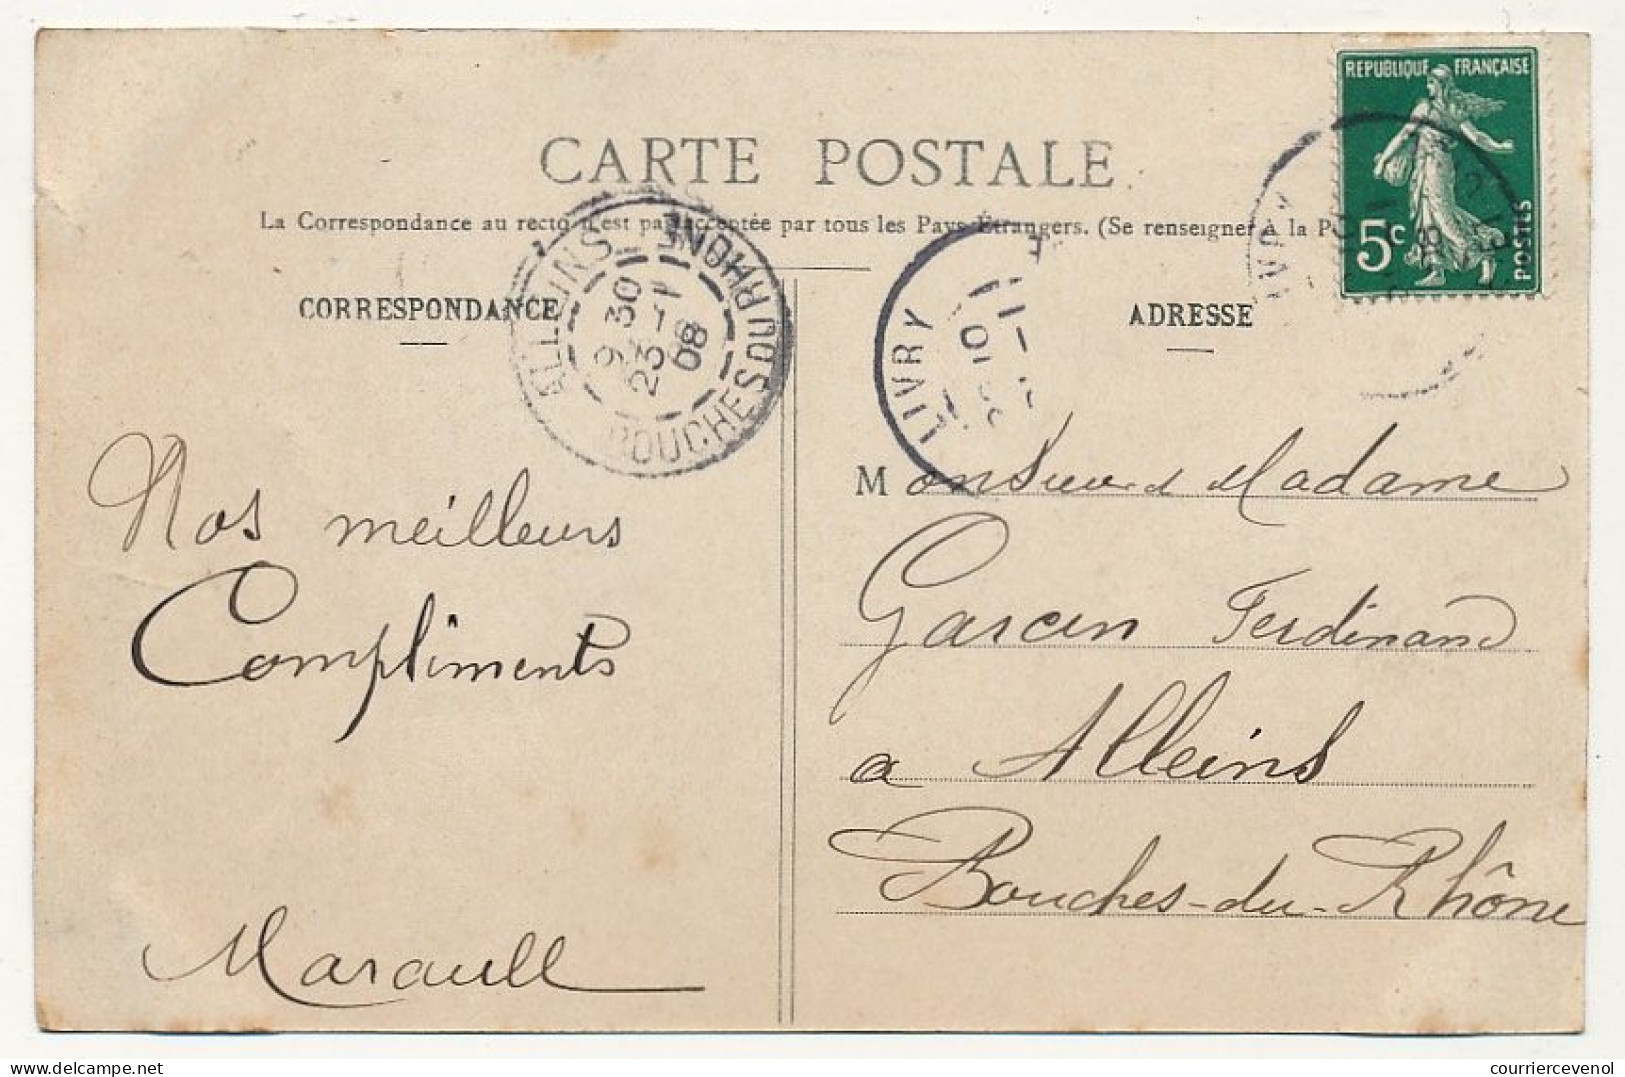 CARTE POSTALE
La Correspondance au recto n'est pas acceptée par tous les Pays Étrangers. (Se renseigner à la P
CORRESPONDANCE
ADRESSE
REPUBLIQUE FRANÇAISE
5c
POSTES
ALLEINS
BOUCHES DU RHONE
9 30
23 -1
08
LIVRY
Nos meilleurs
Compliments
Marault
Monsieur et Madame
Garcin Ferdinand
a Alleins
Bouches-du-Rhône
courriercevenol